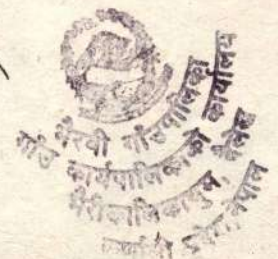 भैरवी गाउँपालिका
गाउँ कार्यपालिकाको कार्यालय
भैरीकालिकाथुम, दैलेख
कर्णाली प्रदेश नेपाल